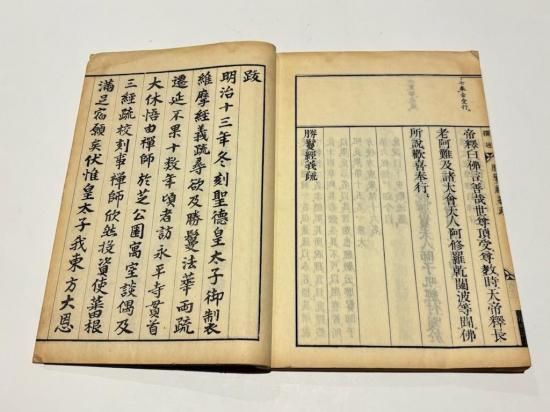 帝釋曰佛言善哉世尊頂受尊教時天帝釋長
老阿難及諸大會天人阿修羅乾闥波等聞佛
所說歡喜奉行
勝鬘經義疏
跋
明治十三年冬刻聖德皇太子御製
維摩經義疏尋欲及勝鬘法華兩疏
遷延不果十數年頃者訪永平寺貫首
大休悟由禪師於芝公園寓室談偶及
三經疏校刻事禪師欣然投資使蕃根
滿足宿願矣伏惟皇太子我東方大恩